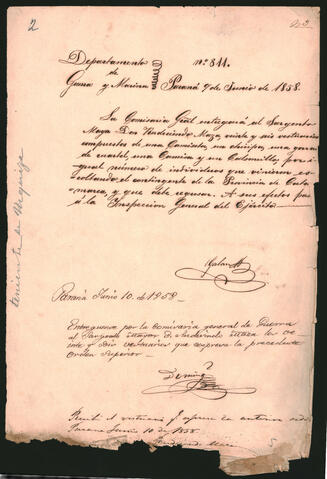 2
Departamento
de
Guerra y Marina
Nº 811.
Paraná 9 de Junio de 1858.
La Comisaria Gral entregará al Sargento
Mayor Don Maza, veinte y seis vestuarios
compuestos de una Camiseta, un chiripá, una gorra
de cuartel, una Camisa y un Calzoncillo, para i-
gual número de individuos que vinieron es-
coltando el contingente de la Provincia de Cata-
marca, y que debe regresar. A sus efectos pase
á la Inspeccion General del Ejército.
Galan
Paraná Junio 10 de 1858.
Entreguense por la Comisaría general de Guerra
al Sargento mayor D. Maza los ve-
inte y seis vestuarios que expresa la precedente
Orden Superior.
Recibí el vestuario que expresa la anterior
Parana Junio 10 de 1858.